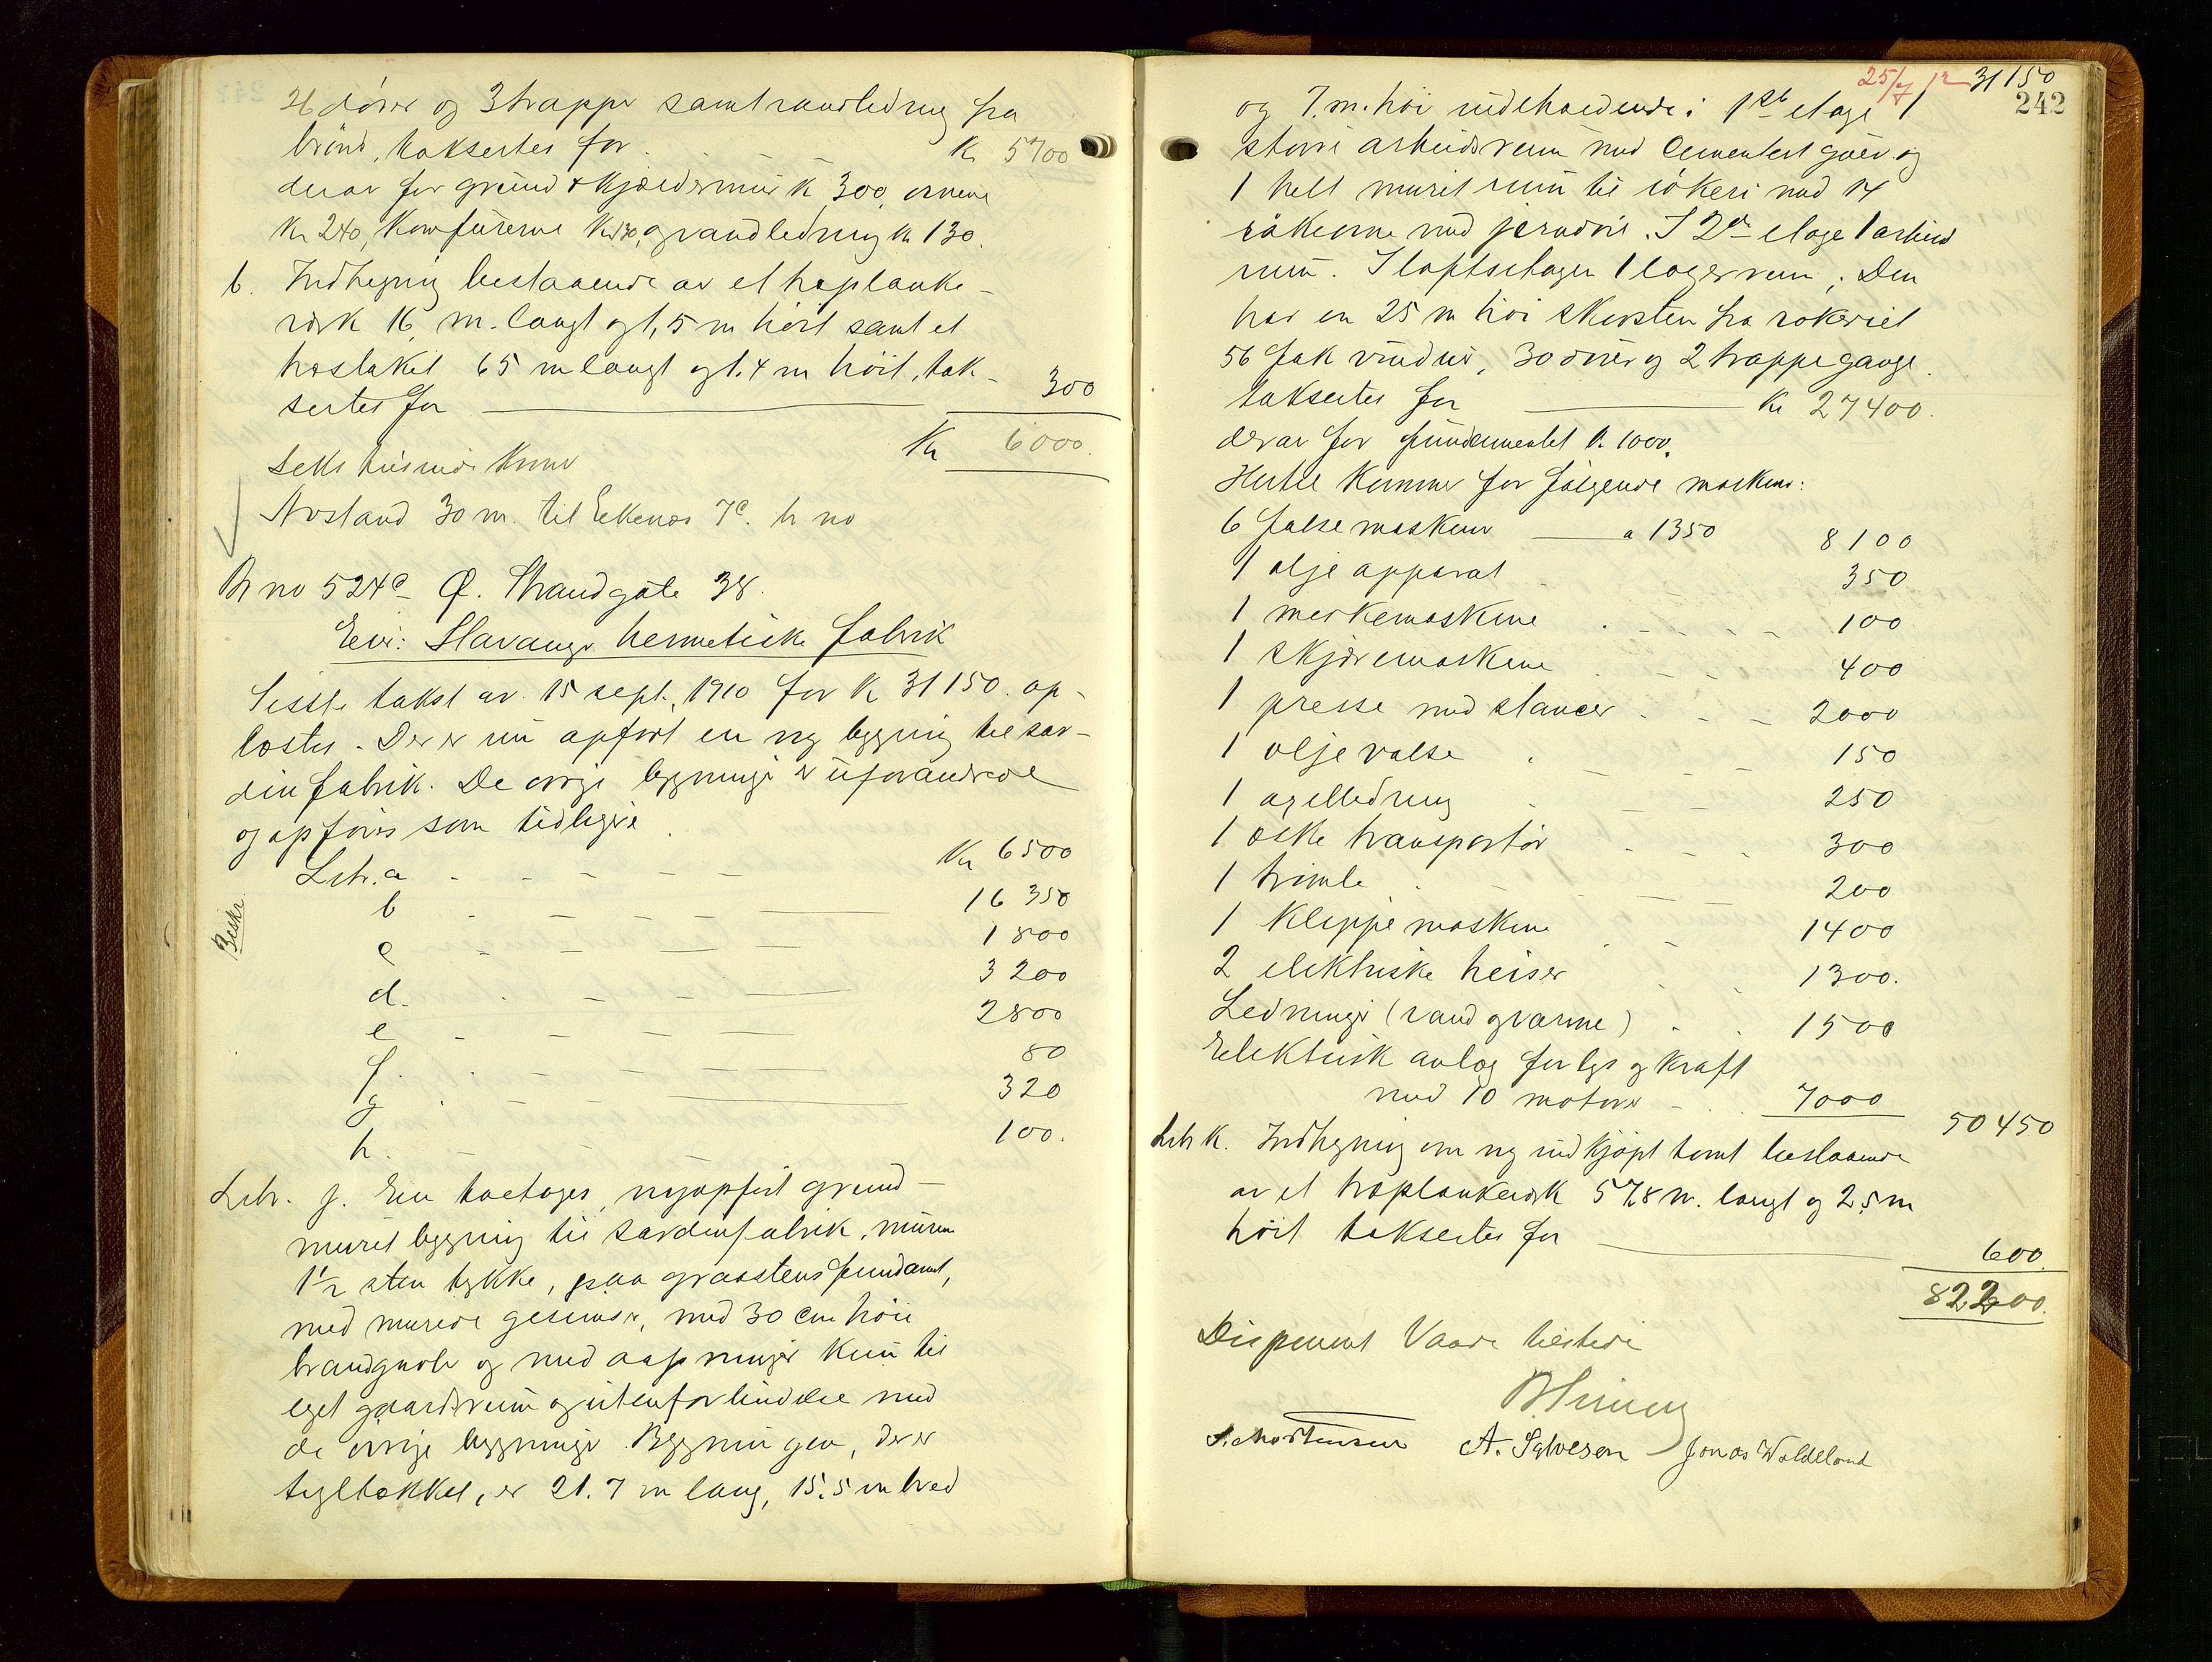 26 dører og 3 trapper samt vandledning fra
brönd, taksertes for Kr 5700
derav for grund & kjældermur K 300, ovnene
Kr 240, Komfurerne Kr 130, og vandledning Kr 130.
b. Indhegning bestaaende av et træplanke-
værk 16 m. langt og 1,5 m høit samt et
træstaket 65 m langt og 1.4 m høit, tak-
sertes for 300
Kr 6000.
Seks tusinde Kroner
Avstand 30 m. til Eekenæs 7c. tr no
Br no 524c Ø. Strandgate 38.
Eier: Stavanger hermetiske fabrik
Sisste takst av 15 sept. 1910 for K 31150. op-
læstes. Der er nu opført en ny bygning til sar-
dinfabrik. De øvrige bygninger er uforandrede
og opføres som tidligere
Litr. a Kr 6500
b 16 350
c 1 800
d. 3 200
e 2800
f. 80
g 320
h. 100.
Beskr
Litr. j. En toetages, nyopført grund-
muret bygning til sardinfabrik, murene
1 1/2 sten tykke, paa graastensfundamt,
med murede gesimser, med 30 cm høie
brandgavle og med aapninger kun til
eget gaardsrum og uten forbindelse med
de øvrige bygninger. Bygningen, der er
tegltækket, er 21.7 m lang, 15.5 m bred
25/7 12 31 150
242
og 7. m. høi indeholdende: 1ste etage 1
større arbeidsrum med Cementert gulv og
1 helt muret rum til rökeri med 14
rökovne med jerndøre. I 2den etage 1 arbeids
rum. I loftsetagen 1 lagerrum; Den
har en 25 m høi skorsten fra rokeriet
56 fak vinduer, 30 dører og 2 trappegange.
taksertes for Kr 27400.
derav for fundamentet K 1000.
Hertil kommer for følgende maskiner:
6 falsemaskiner a 1350 8100
1 olje apparat 350
1 merkemaskine 100
1 skjæremaskine 400
1 presse med stancer 2000
1 oljevalse 150
1 axelledning 250
1 æske transportør 300
1 trimle 200
1 Klippemaskine 1400
2 elektriske heiser 1300.
Ledninger (vand og varme) 1500
Elektrisk anlæg for lys og kraft
med 10 motorer 7000
50 450
Litr k. Indhegning om ny indkjøpt tomt bestaaende
av et træplankeværk 57,8 m. langt og 2,5 m
høit taksertes for 600.
82200.
Disponent Vaare tilstede
S. Mortensen A. Salvesen Jonas Woldeland